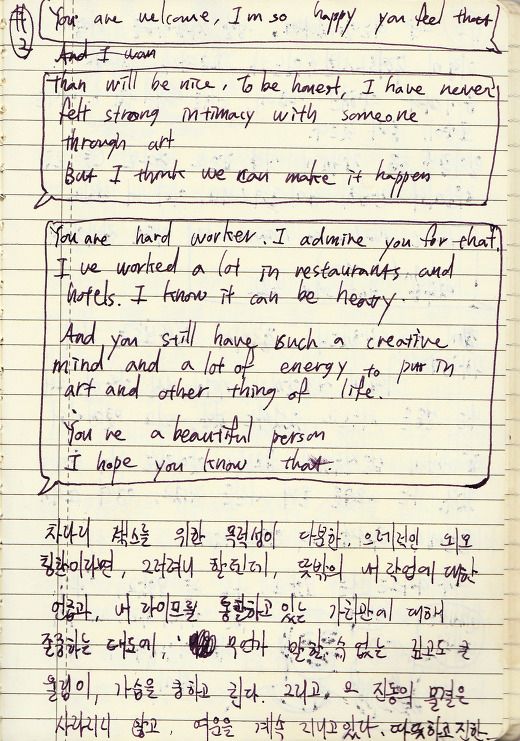 #2
You are welcome, I'm so happy you feel that
And I wan
than will be nice, To be honest, I have never
felt strong intimacy with someone
through art
But I think we can make it happen
You are hard worker. I admire you for that.
I've worked a lot in restaurants and
hotels. I know it can be heavy.
And you still have such a creative
mind and a lot of energy to put in
art and other thing of life.
You're a beautiful person
I hope you know that.
차라리 섹스를 위한 목적성이 다분한, 으레적인 외모
칭찬이라면, 그러려니 할텐데, 뜻밖의 내 작업에 대한
언급과, 내 라이프를 통찰하고 있는 가치관에 대해
존중하는 태도에, 무언가 말할 수 없는 깊고도 큰
울림이, 가슴을 쿵하고 친다. 그리고, 그 진동의 물결은
사라지지 않고, 여운을 계속 지니고 있다. 따뜻하고 진한